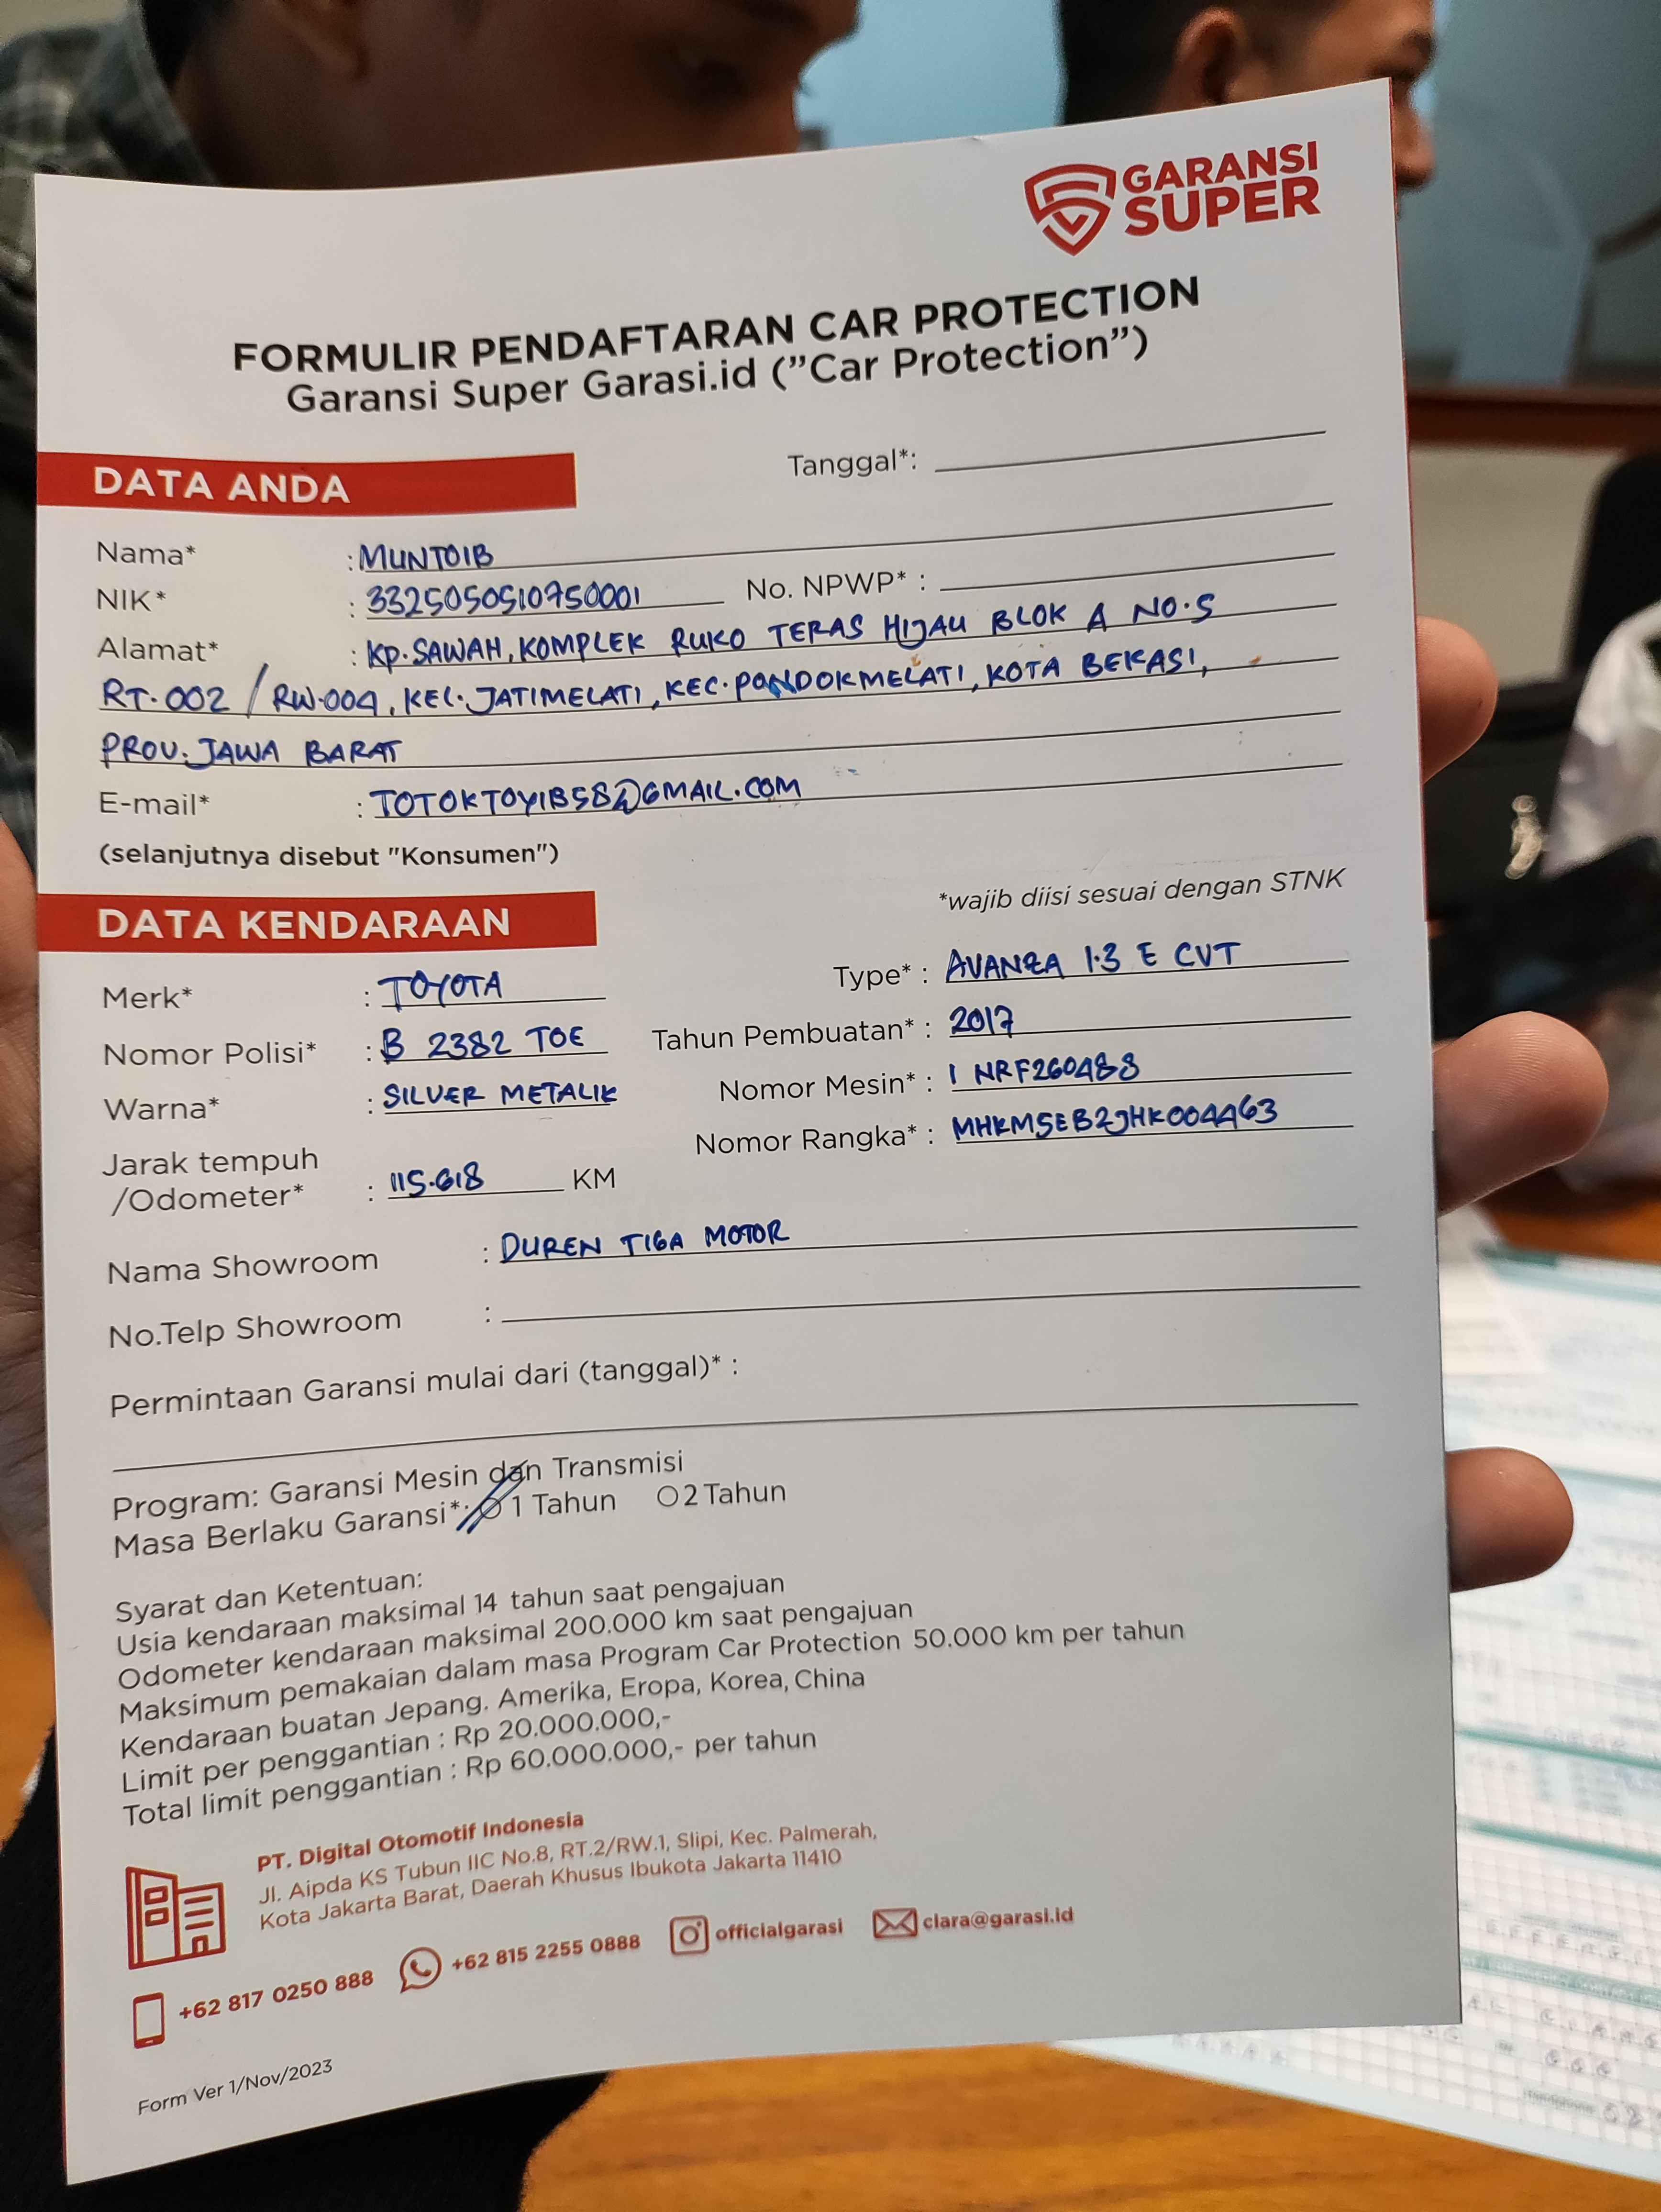 GARANSI
SUPER
FORMULIR PENDAFTARAN CAR PROTECTION
Garansi Super Garasi.id ("Car Protection")
DATA ANDA
Tanggal*:
Nama* : MUNTOIB
NIK* : 3325050510750001 No. NPWP* :
Alamat* : KP. SAWAH, KOMPLEK RUKO TERAS HIJAU BLOK A NO.5
RT.002 / RW.004, KEL. JATIMELATI, KEC. PONDOKMELATI, KOTA BEKASI,
PROV. JAWA BARAT
E-mail* : TOTOKTOYIB58@GMAIL.COM
(selanjutnya disebut "Konsumen")
*wajib diisi sesuai dengan STNK
DATA KENDARAAN
Merk* : TOYOTA Type* : AVANZA 1.3 E CVT
Nomor Polisi* : B 2382 TOE Tahun Pembuatan* : 2017
Warna* : SILVER METALIK Nomor Mesin* : 1 NRF260488
Nomor Rangka* : MHKM5EB2JHK004463
Jarak tempuh
/Odometer* : 115.618 KM
Nama Showroom : DUREN TIGA MOTOR
No.Telp Showroom :
Permintaan Garansi mulai dari (tanggal)* :
Program: Garansi Mesin dan Transmisi
Masa Berlaku Garansi*: 1 Tahun 2 Tahun
Syarat dan Ketentuan:
Usia kendaraan maksimal 14 tahun saat pengajuan
Odometer kendaraan maksimal 200.000 km saat pengajuan
Maksimum pemakaian dalam masa Program Car Protection 50.000 km per tahun
Kendaraan buatan Jepang. Amerika, Eropa, Korea, China
Limit per penggantian : Rp 20.000.000,-
Total limit penggantian : Rp 60.000.000,- per tahun
PT. Digital Otomotif Indonesia
Jl. Aipda KS Tubun IIC No.8, RT.2/RW.1, Slipi, Kec. Palmerah,
Kota Jakarta Barat, Daerah Khusus Ibukota Jakarta 11410
+62 817 0250 888 +62 815 2255 0888 officialgarasi clara@garasi.id
Form Ver 1/Nov/2023